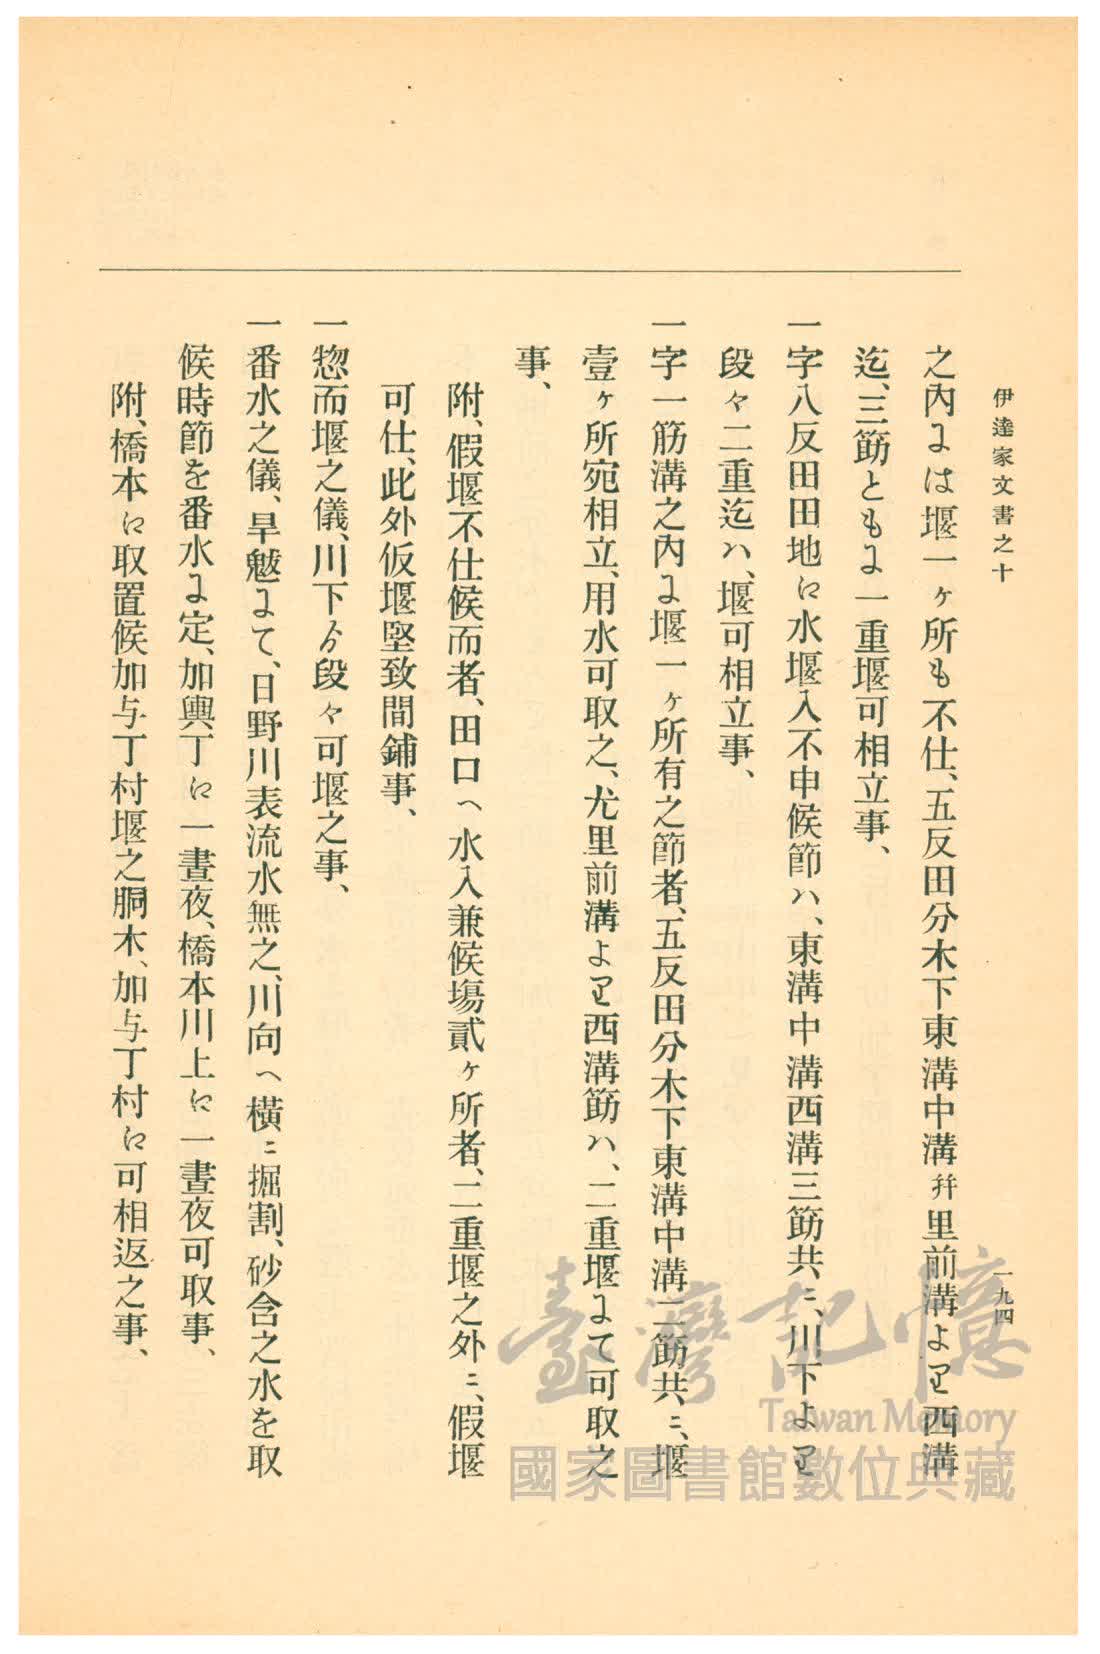 伊達家文書之十
一九四
之內ニは堰一ヶ所も不仕、五反田分木下東溝中溝幷里前溝より西溝
迄、三筋ともニ一重堰可相立事、
一字八反田田地ニ水堰入不申候節ハ、東溝中溝西溝三筋共ニ、川下より
段々二重迄ハ、堰可相立事、
一字一筋溝之內ニ堰一ヶ所有之節者、五反田分木下東溝中溝二筋共ニ、堰
壹ヶ所宛相立、用水可取之、尤里前溝より西溝筋ハ、二重堰ニて可取之
事、
附、假堰不仕候而者、田口へ水入兼候場貳ヶ所者、二重堰之外ニ、假堰
可仕、此外仮堰堅致間鋪事、
一惣而堰之儀、川下ゟ段々可堰之事、
一番水之儀、旱魃ニて、日野川表流水無之、川向へ橫ニ掘割、砂含之水を取
候時節を番水ニ定、加輿丁ニ一晝夜、橋本川上ニ一晝夜可取事、
附、橋本ニ取置候加与丁村堰之胴木、加与丁村ニ可相返之事、
臺灣記憶
Taiwan Memory
國家圖書館數位典藏